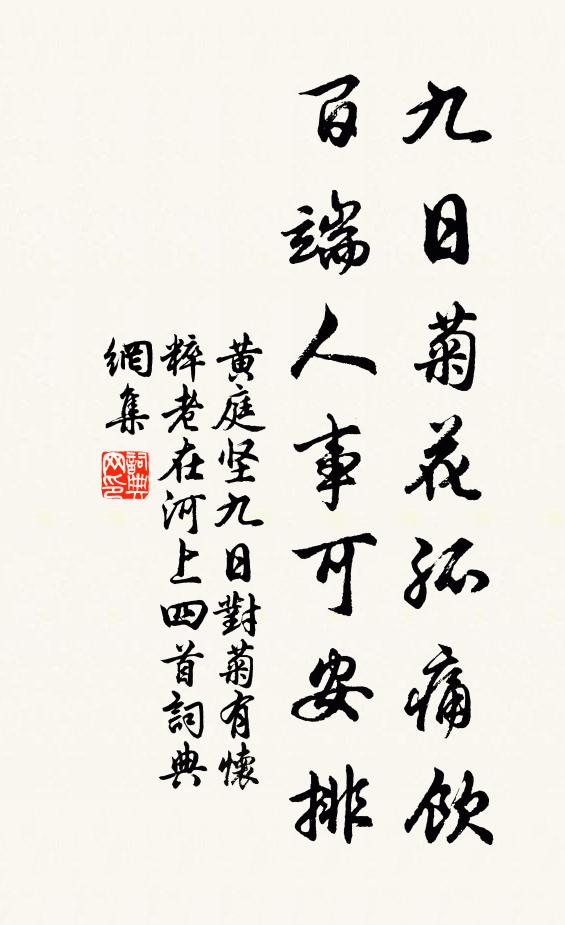 九日菊花孤痛飲
百端人事可安排
黄庭坚九日對菊有懷
粹老在河上四首詞典
網集
詞典網印